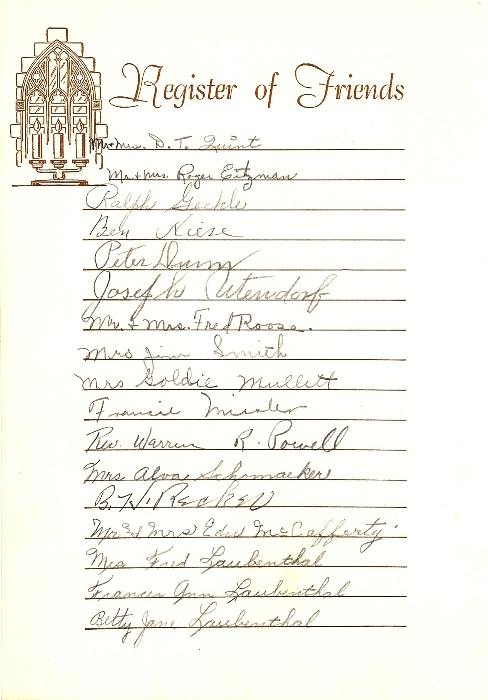 Register of Friends
Mr + Mrs. D. T. Quint
Mr. + Mrs. Roger Eitzman
Ralph Geckle
Ben Niese
Peter Dunn
Joseph Utendorf
Mr. + Mrs. Fred Roose.
Mrs Jim Smith
Mrs Goldie Mullett
Francie Misler
Rev. Warren R. Powell
Mrs Alva Schomacker
B. H. Recker
Mr & Mrs Edw McCafferty
Mrs Fred Laubenthal
Frances Ann Laubenthal
Betty Jane Laubenthal